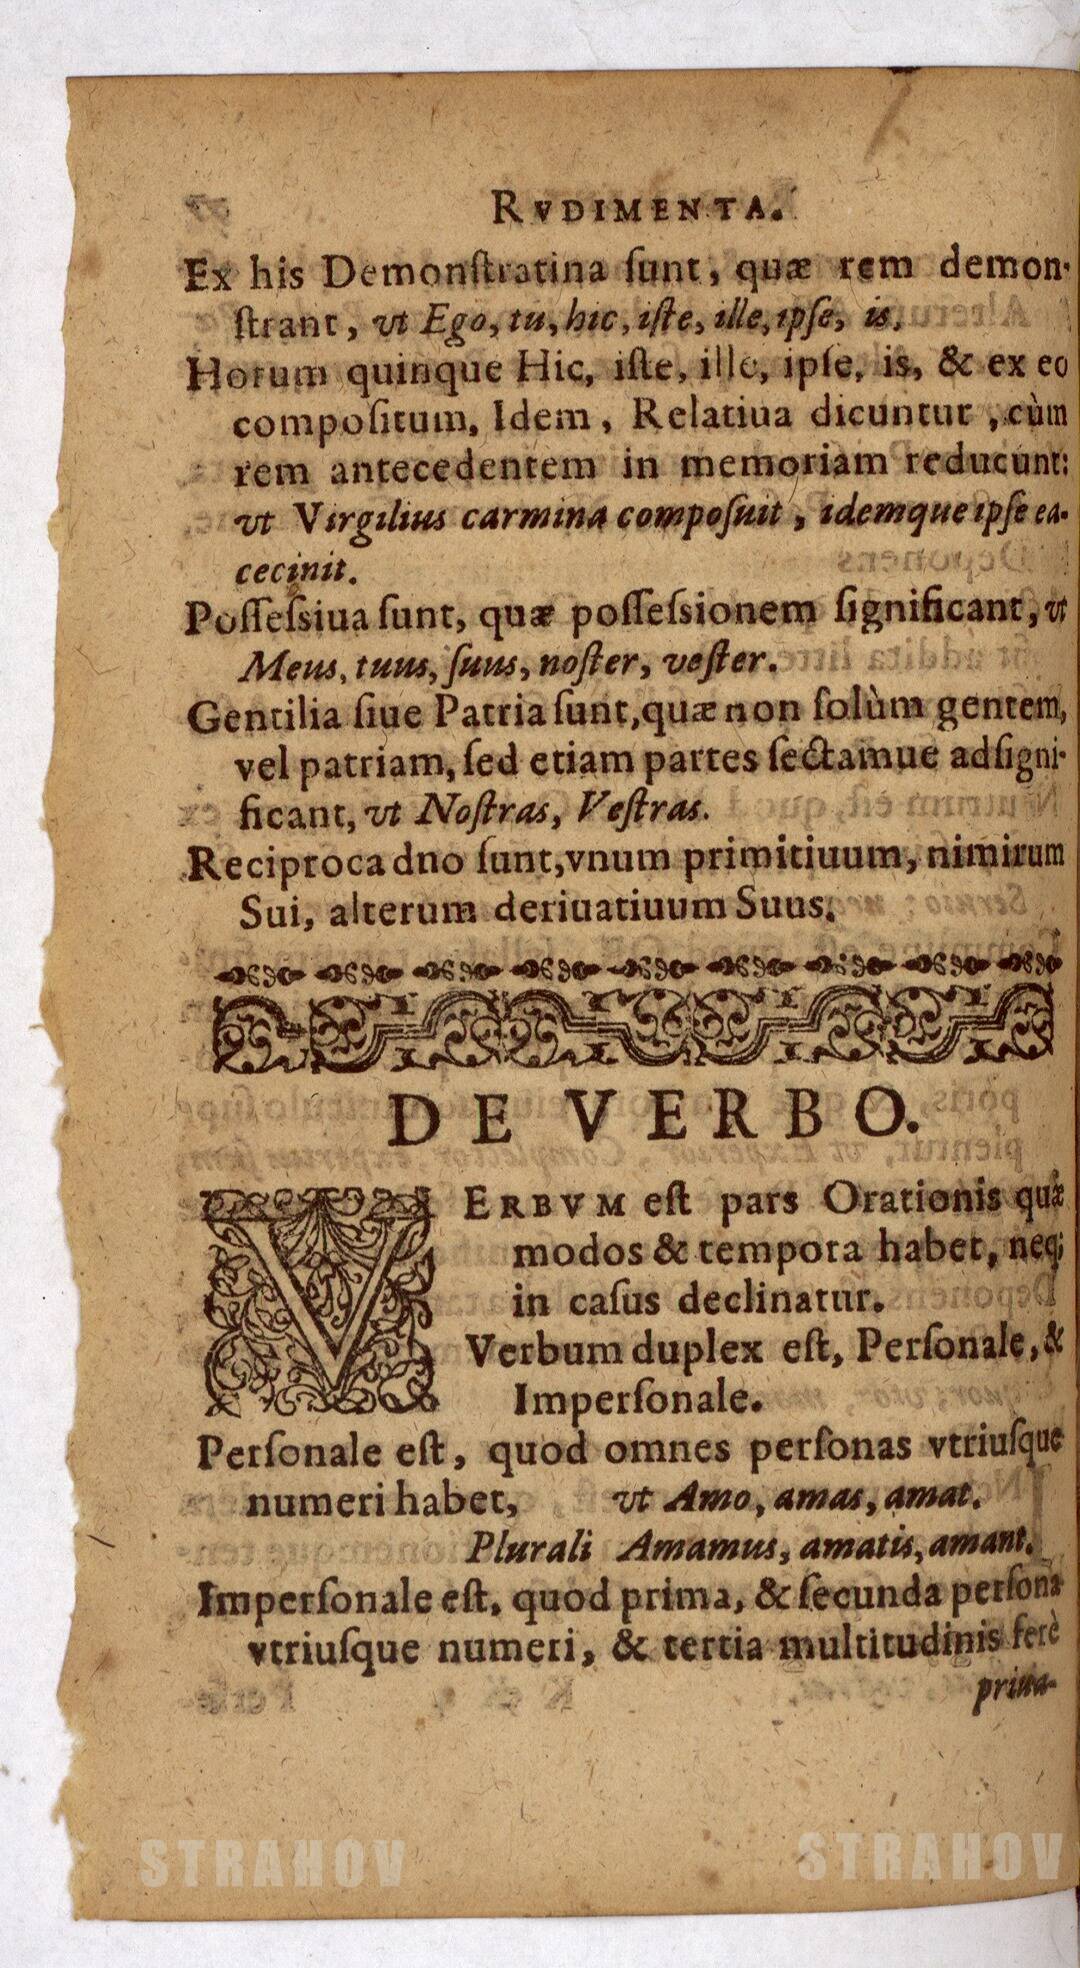 RVDIMENTA.
Ex his Demonſtratina ſunt, quæ rem demon-
ſtrant, vt Ego, tu, hic, iſte, ille, ipſe, is.
Horum quinque Hic, iſte, ille, ipſe, is, & ex eo
compoſitum, Idem, Relatiua dicuntur, cùm
rem antecedentem in memoriam reducunt:
vt Virgilius carmina compoſuit, idemque ipſe ea-
cecinit.
Poſſeſsiua ſunt, quæ poſſeſsionem ſignificant, vt
Meus, tuus, ſuus, noſter, veſter.
Gentilia ſiue Patria ſunt, quæ non ſolùm gentem,
vel patriam, ſed etiam partes ſectamue adſigni-
ficant, vt Noſtras, Veſtras.
Reciproca dno ſunt, vnum primitiuum, nimirum
Sui, alterum deriuatiuum Suus.
DE VERBO.
VERBVM eſt pars Orationis quæ
modos & tempora habet, neq;
in caſus declinatur.
Verbum duplex eſt, Perſonale, &
Imperſonale.
Perſonale eſt, quod omnes perſonas vtriuſque
numeri habet, vt Amo, amas, amat.
Plurali Amamus, amatis, amant.
Imperſonale eſt, quod prima, & ſecunda perſona
vtriuſque numeri, & tertia multitudinis ferè
priua-
STRAHOV STRAHOV